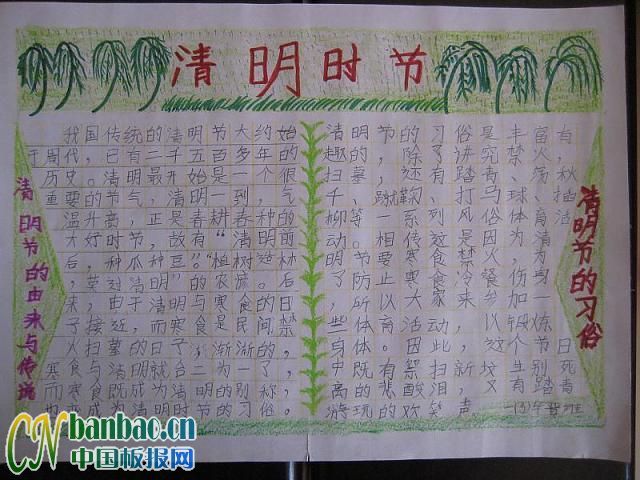 清明时节
清明节的由来与传说
我国传统的清明节大约始
于周代，已有二千五百多年的
历史。清明最开始是一个很
重要的节气，清明一到，气
温升高，正是春耕春种的
大好时节，故有“清明前
后，种瓜种豆。”“植树造林
，莫过清明”的农谚。后
来，由于清明与寒食的日
子接近，而寒食是民间禁
火扫墓的日子，渐渐的，
寒食与清明就合二为一了，
而寒食既成为清明的别称，
也变成为清明时节的习俗。
清明节的习俗是丰富有
趣的，除了讲究禁火，
扫墓，还有踏青、荡秋
千、蹴鞠、打马球、插
柳等一系列风俗体育活
动。相传这是因为清
明节要寒食禁火，为
了防止寒食冷餐伤身
，所以大家来参加一
些体育活动，以锻炼
身体。因此，这个节日
中既有祭扫新坟生别死
离的悲酸泪，又有踏青
游玩的欢笑声
清明节的习俗
CNbanbao.cn
中国板报网